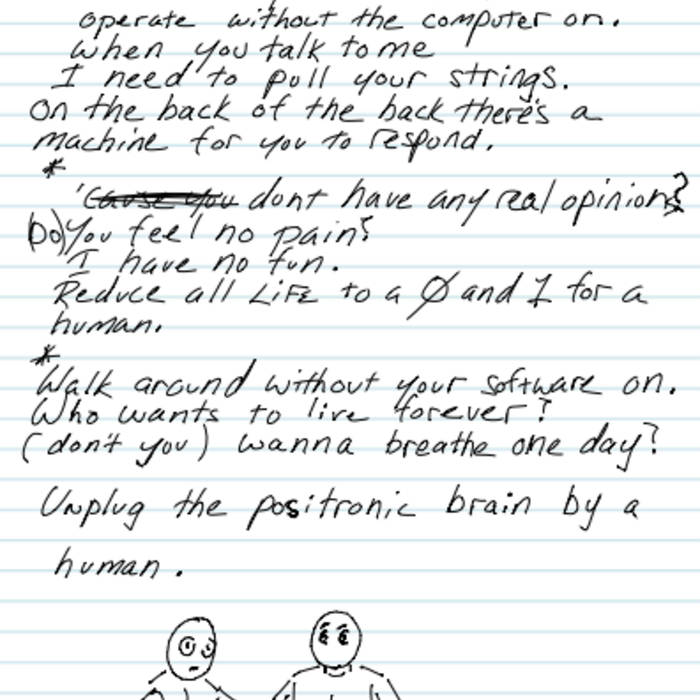 operate without the computer on.
when you talk to me
I need to pull your strings.
On the back of the back there's a
machine for you to respond.
*
'Cause you dont have any real opinions?
(Do) You feel no pain?
I have no fun.
Reduce all LiFE to a Ø and 1 for a
human.
*
Walk around without your software on.
Who wants to live forever?
(don't you) wanna breathe one day?
Unplug the positronic brain by a
human.